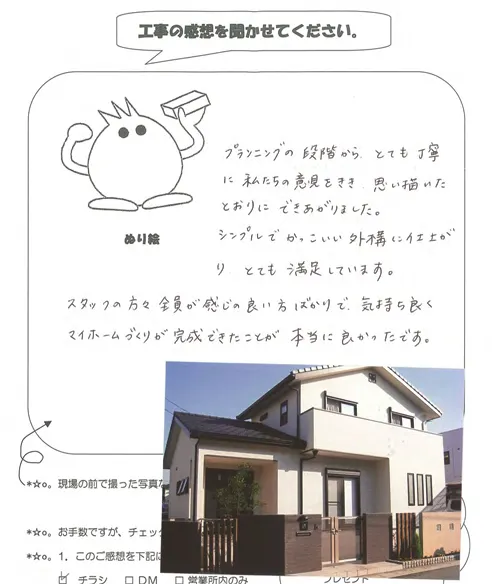 工事の感想を聞かせてください。
ぬり絵
プランニングの段階から、とても丁寧
に私たちの意見をきき、思い描いた
とおりにできあがりました。
シンプルでかっこいい外構に仕上が
り、とても満足しています。
スタッフの方々全員が感じの良い方ばかりで、気持ち良く
マイホームづくりが完成できたことが本当に良かったです。
*☆o。現場の前で撮った写真な
*☆o。お手数ですが、チェッ
*☆o。1、このご感想を下記に
☑ チラシ □DM □営業所内のみ
プレゼント